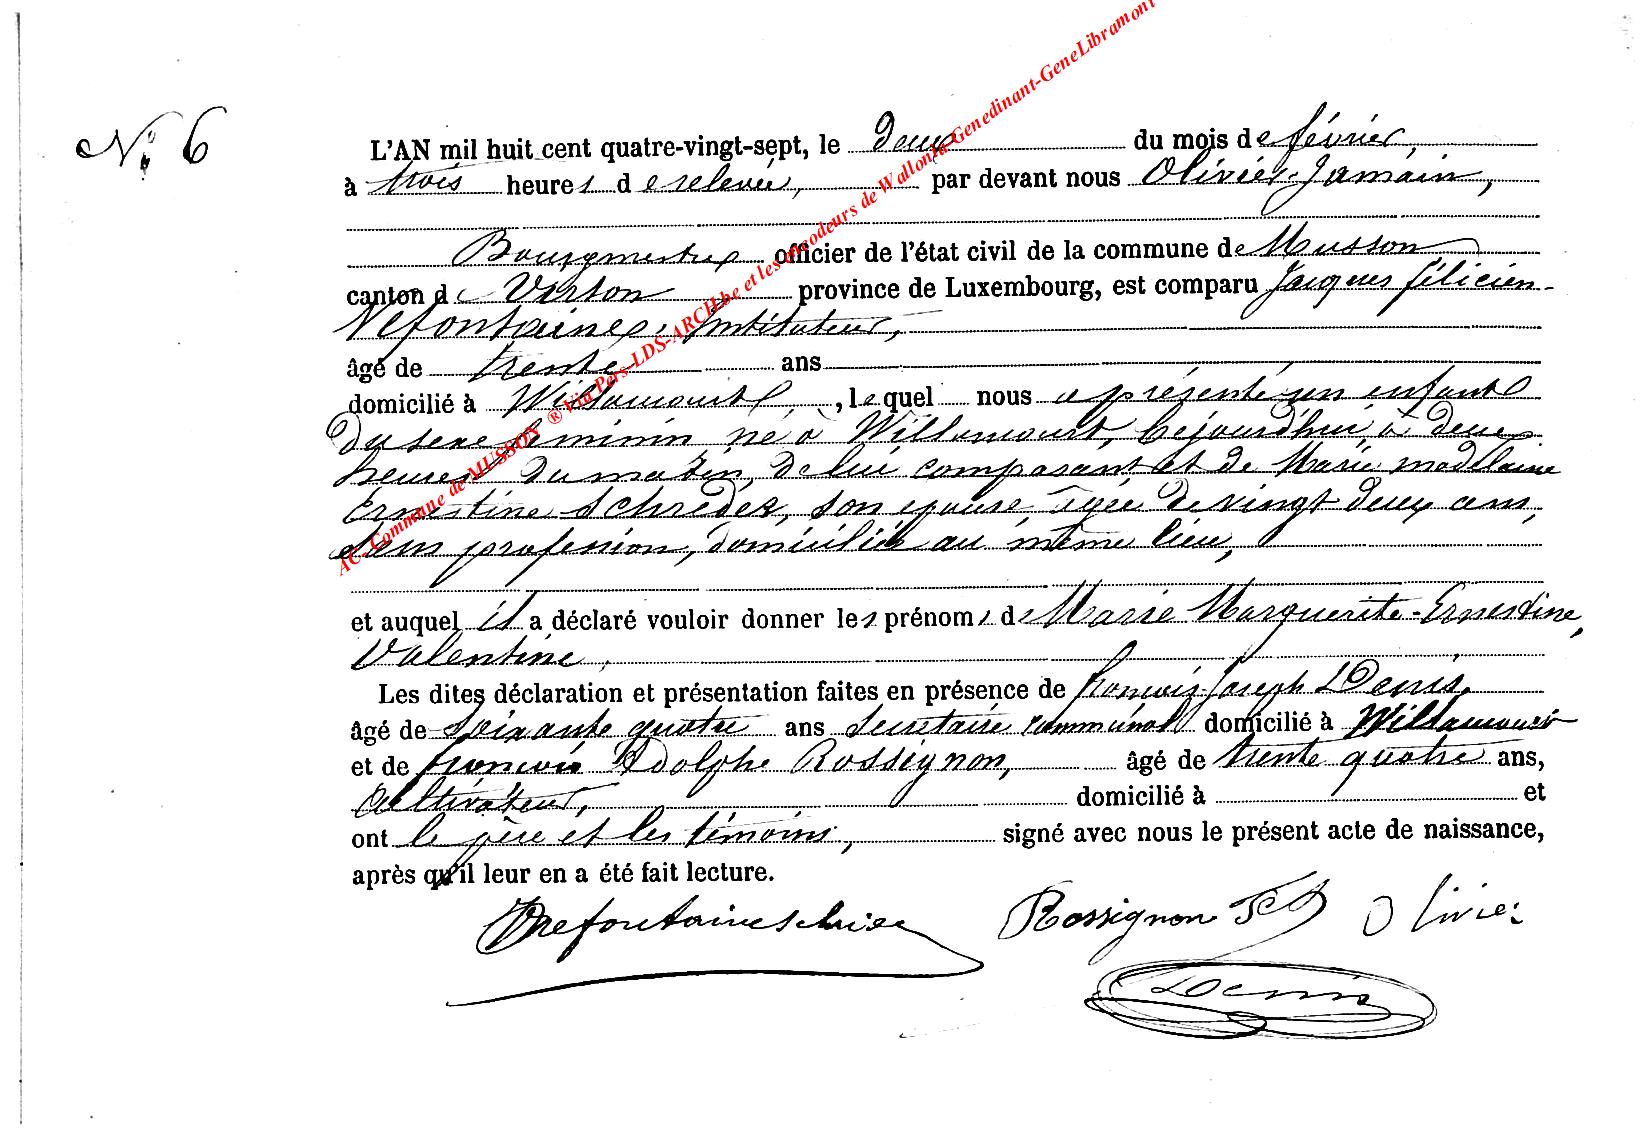 N° 6
L'AN mil huit cent quatre-vingt-sept, le deux du mois de février,
à trois heures de relevée, par devant nous Olivier Jamain,
Bourgmestre officier de l'état civil de la commune de Musson
canton de Virton province de Luxembourg, est comparu Jacques félicien
Nefontaine, instituteur,
âgé de trente ans
domicilié à Willancourt, lequel nous a présenté un enfant
du sexe feminin né à Willancourt, cejourd'hui à deux
heures du matin, de lui comparant et de Marie madelaine
Ernestine Schréder, son épouse, âgée de vingt deux ans,
sans profession, domiciliée au même lieu,
et auquel il a déclaré vouloir donner les prénoms de Marie Marguerite-Ernestine,
Valentine,
Les dites déclaration et présentation faites en présence de françois Joseph Denis,
âgé de soixante quatre ans secrétaire communal domicilié à Willancourt
et de françois Adolphe Rossignon, âgé de trente quatre ans,
cultivateur, domicilié à et
ont le père et les témoins, signé avec nous le présent acte de naissance,
après qu'il leur en a été fait lecture.
Rossignon Olivier
Denis
AC-Commune de MUSSON ® Via Pers-LDS-ARCH.be et les encodeurs de Wallonia-Genedinant-GeneLibramont